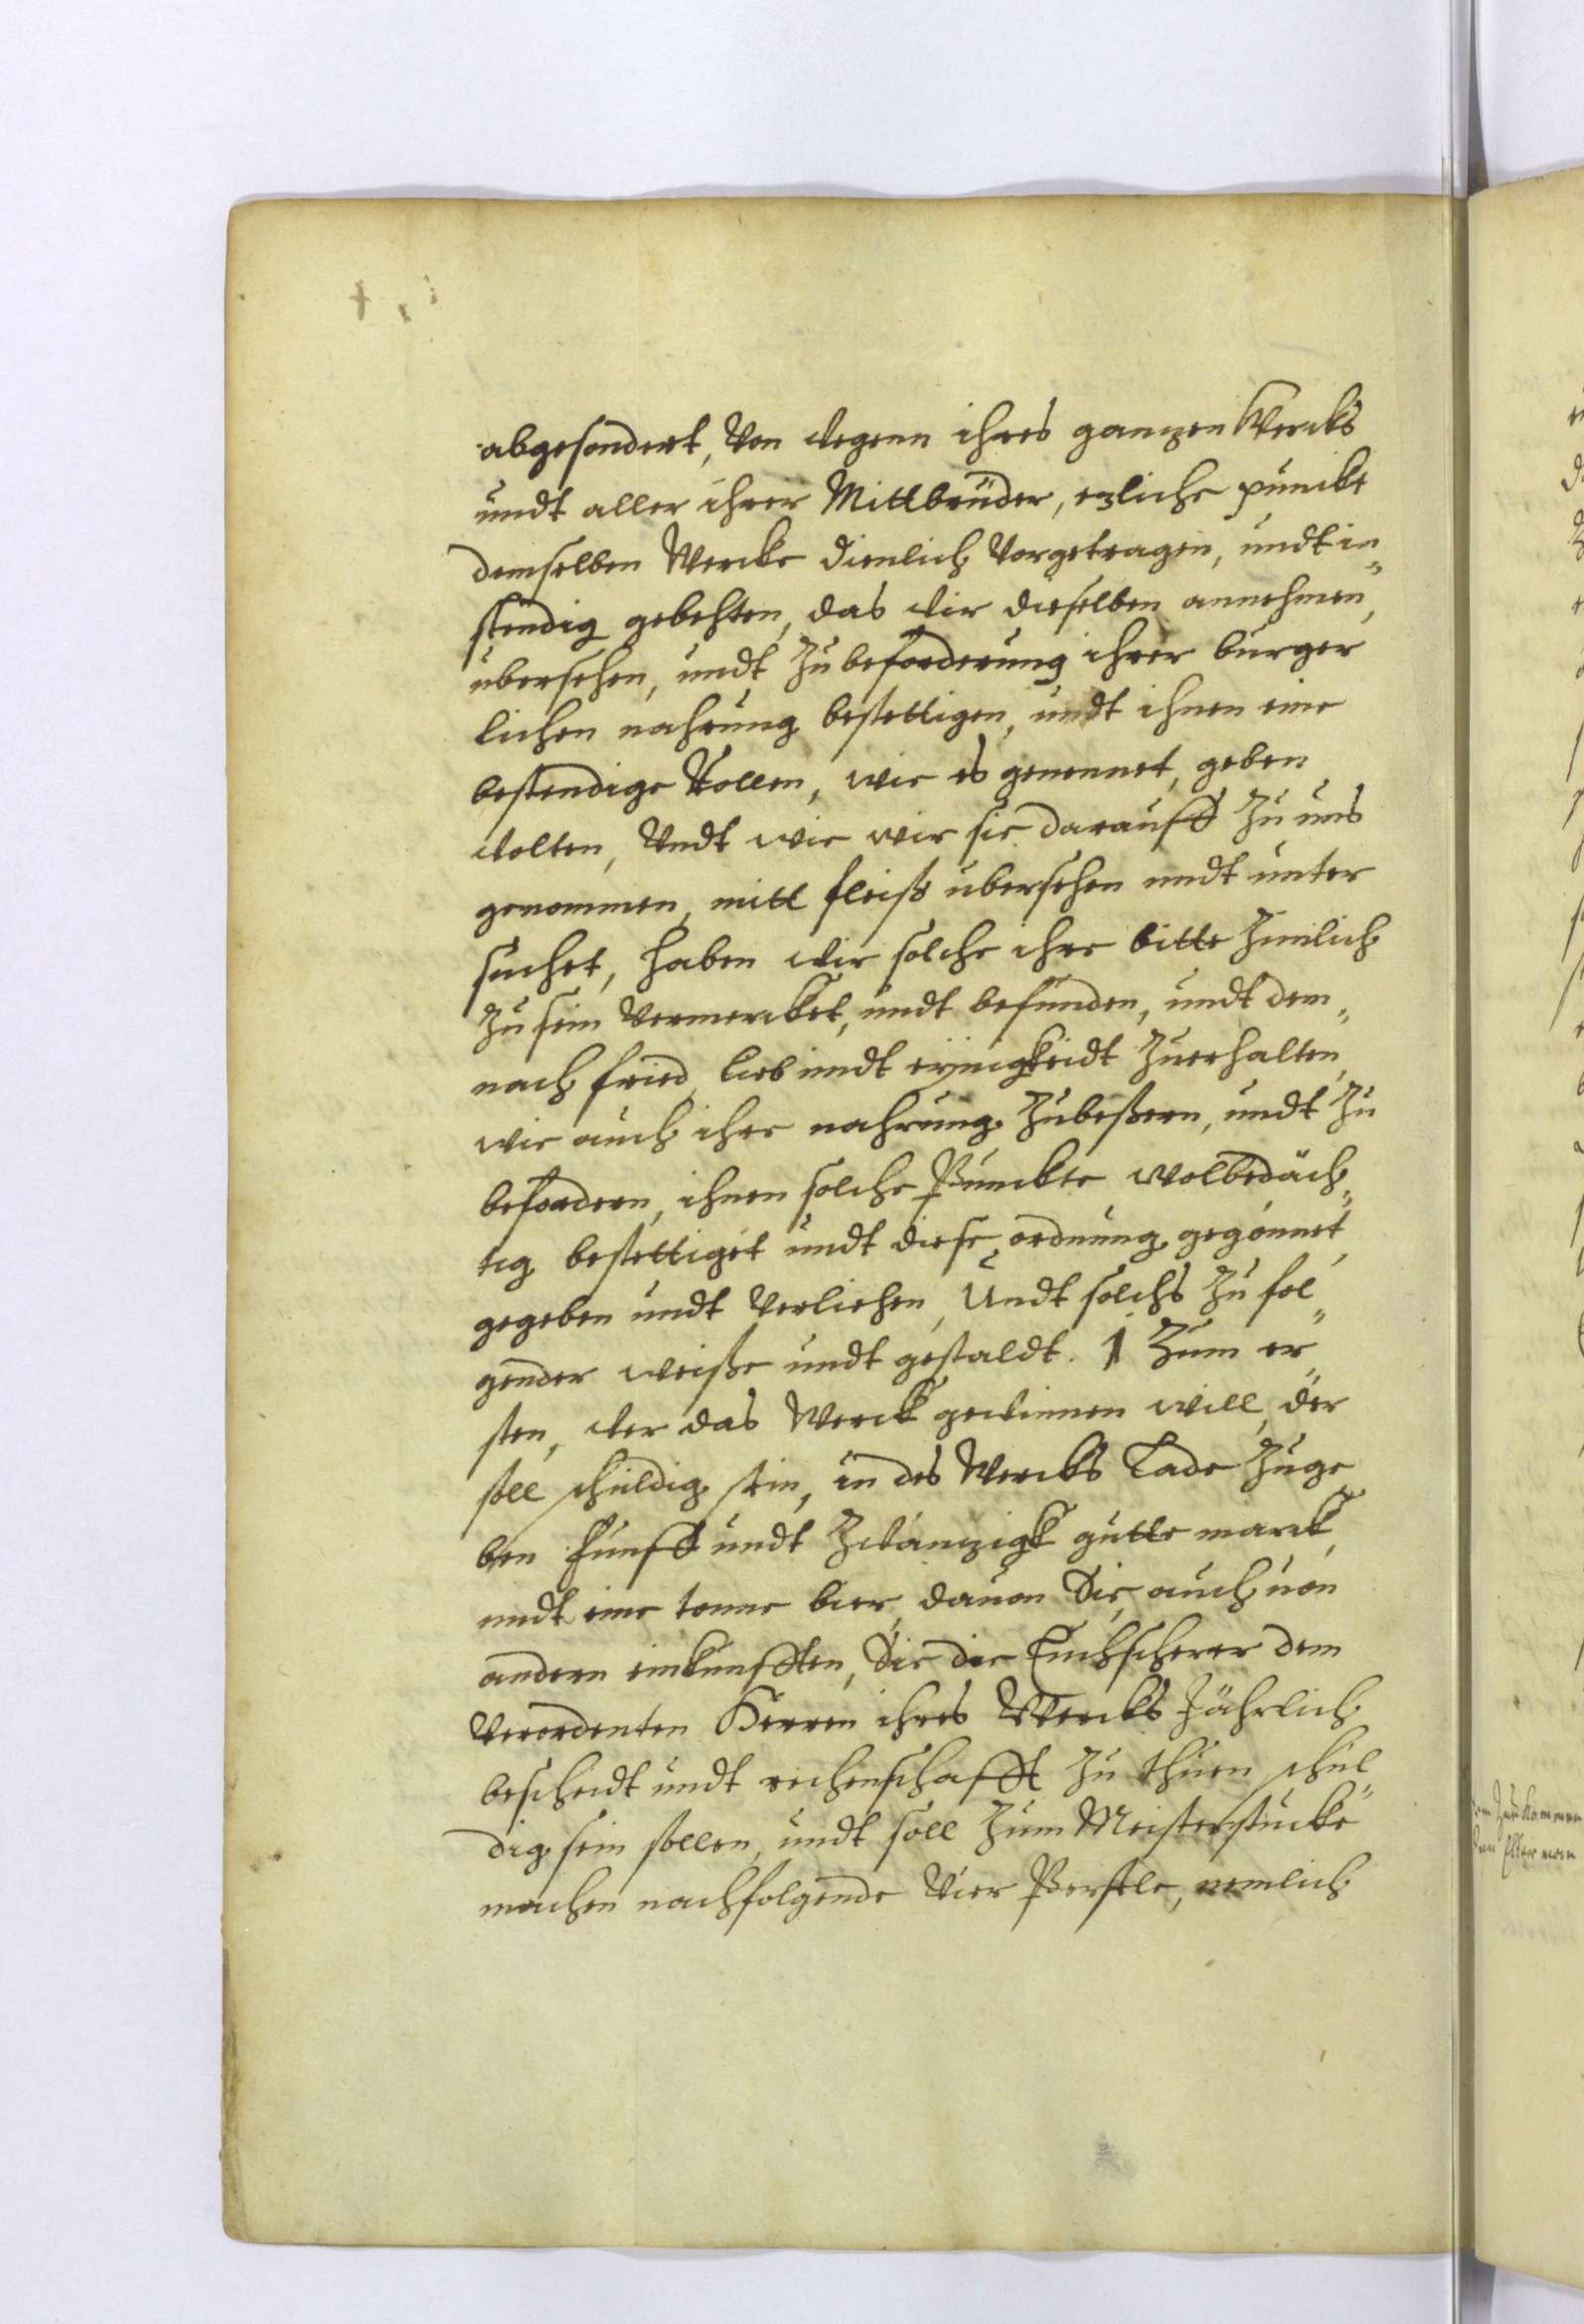 abgesondert, Von wegenn ihres ganzen Wercks
undt aller ihrer Mittbrüder, etzliche puncte
demselben Wercke dienlich vorgetragen, undt in„
stendig gebehten, das wir dieselben annehmen,
ubersehen, undt zu beforderung ihrer burger
lichen nahrung bestettigen, undt ihnen eine
bestendige Rollen, wie es genennet, geben
wolten, Undt wie wir sie darauff zu uns
genommen, mitt fleiß ubersehen undt unter
suchet, haben wir solche ihre bitte zimlich
zu sein vermercket, undt befunden, undt dem„
nach fried, lieb undt eynigkeidt zuerhalten,
wie auch ihre nahrung zubeßern, undt zu
befordern, ihnen solche Puncte wolbedäch„
tig bestettiget undt diese ordnung gegönnet,
gegeben undt verliehen, Undt solchs zu fol„
gender weiße undt gestaldt. 1 Zum er„
sten, wer das Werck gewinnen will, der
soll schuldig sein, in des Wercks Lade zuge
ben funff undt zwanzigk gutte marck,
undt eine tonne bier, dauon sie, auch uon
andern einkunfften, die die Tuchscherer dem
verordenten Herren ihres Wercks Jährlich
bescheidt undt rechenschafft zu thuen schul„
dig sein sollen, undt soll zum Meisterstucke
machen nachfolgende Vier
nemlich